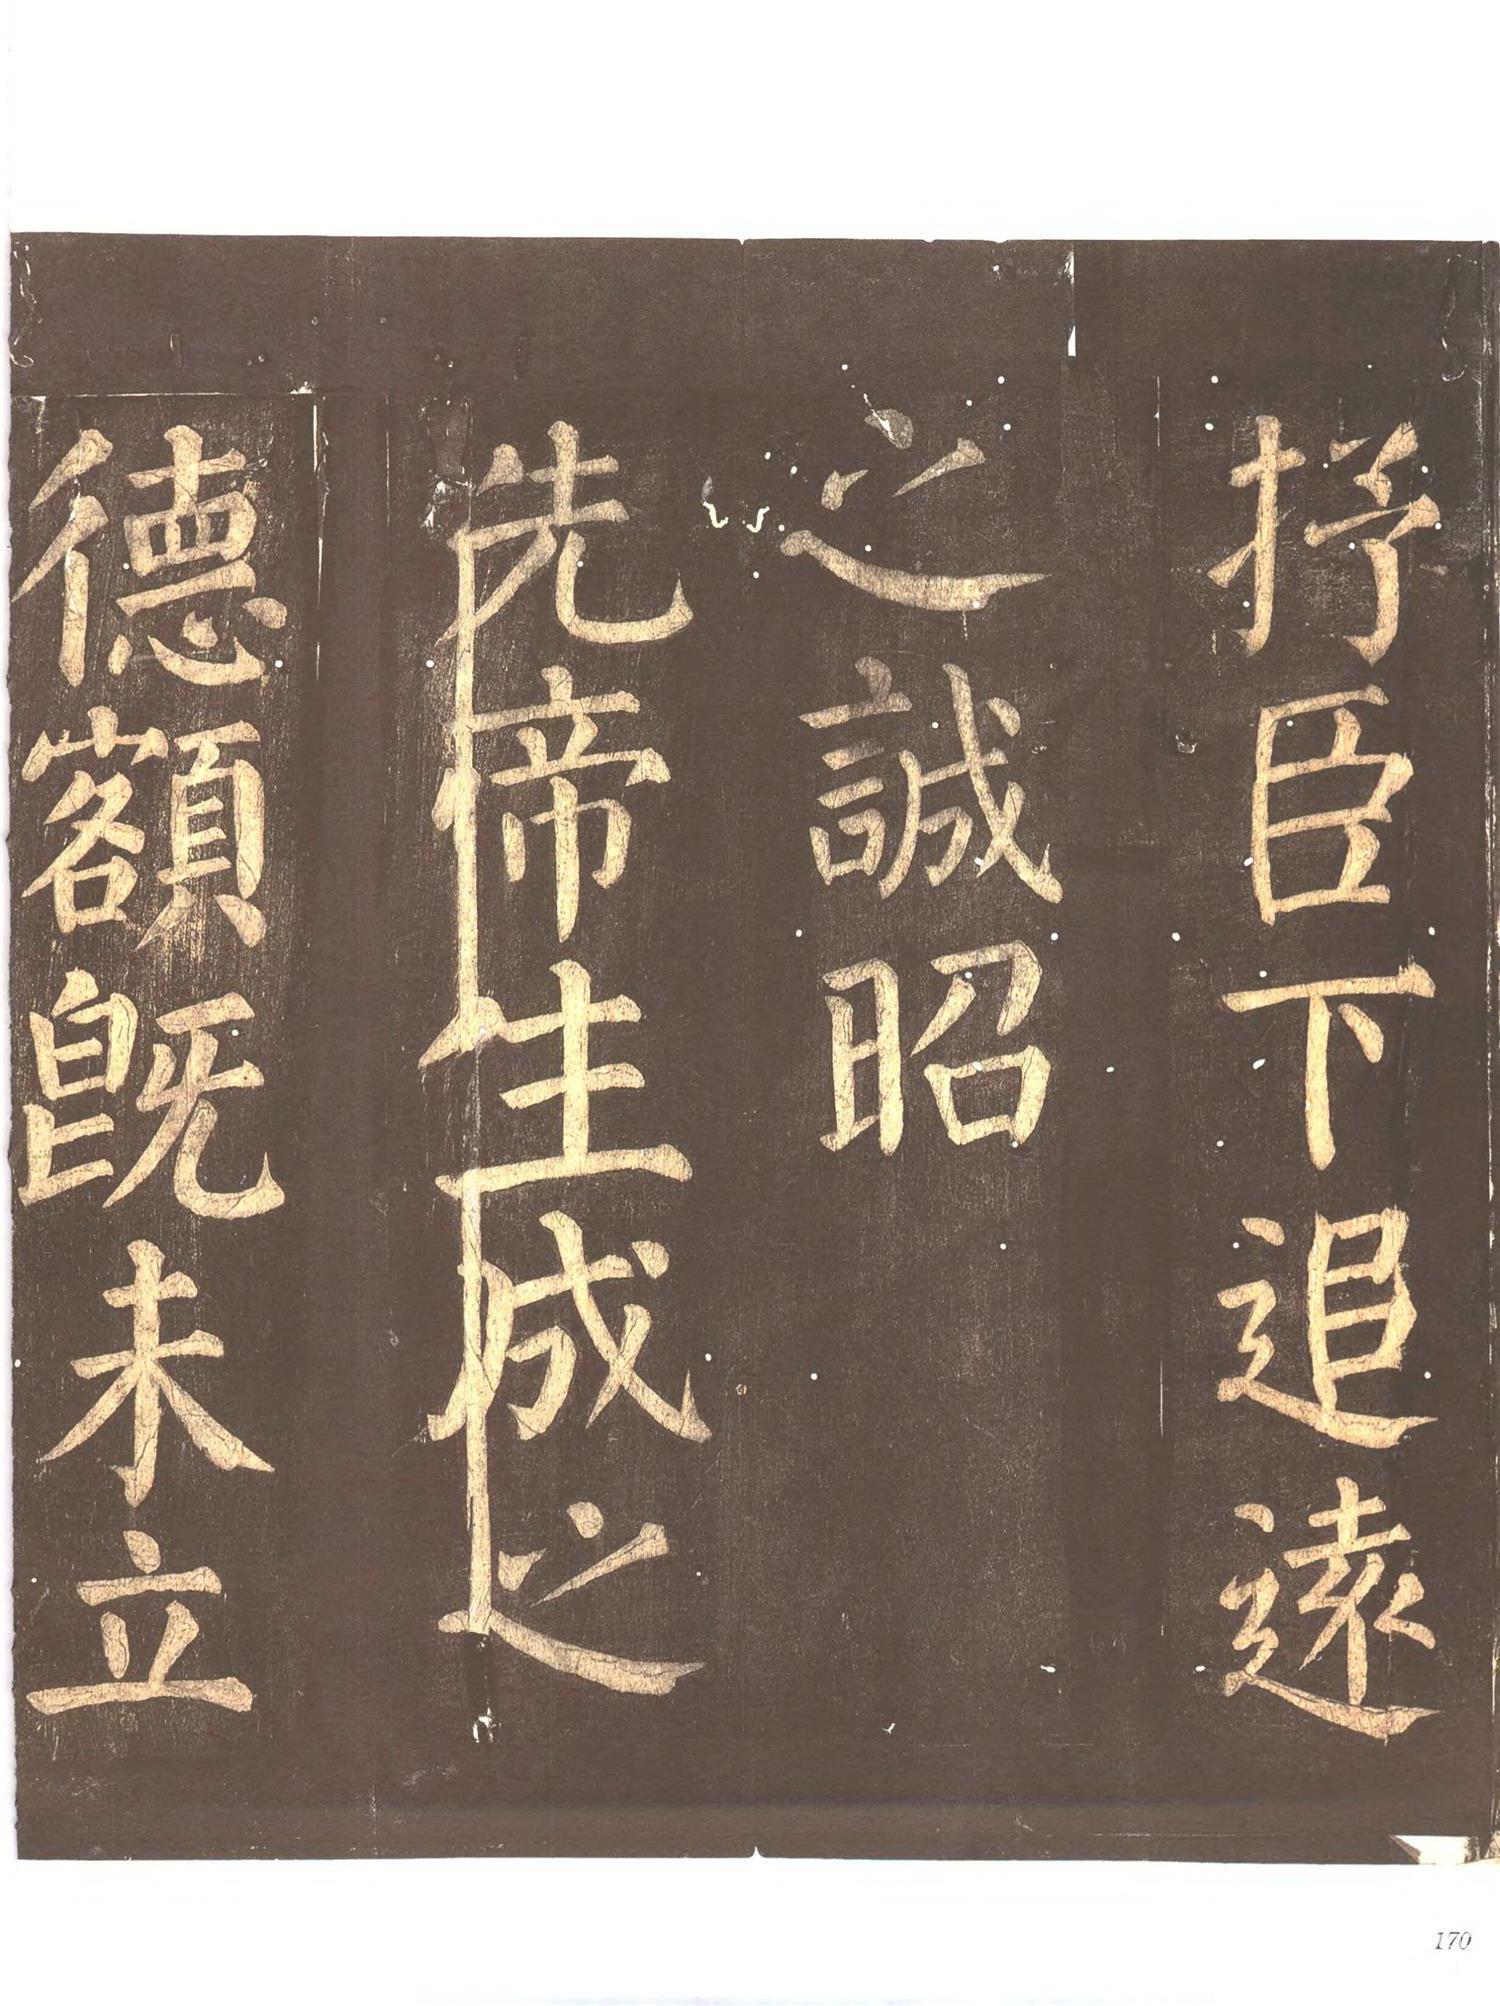 抒臣下追遠
之誠昭
先帝生成之
德額既未立
170